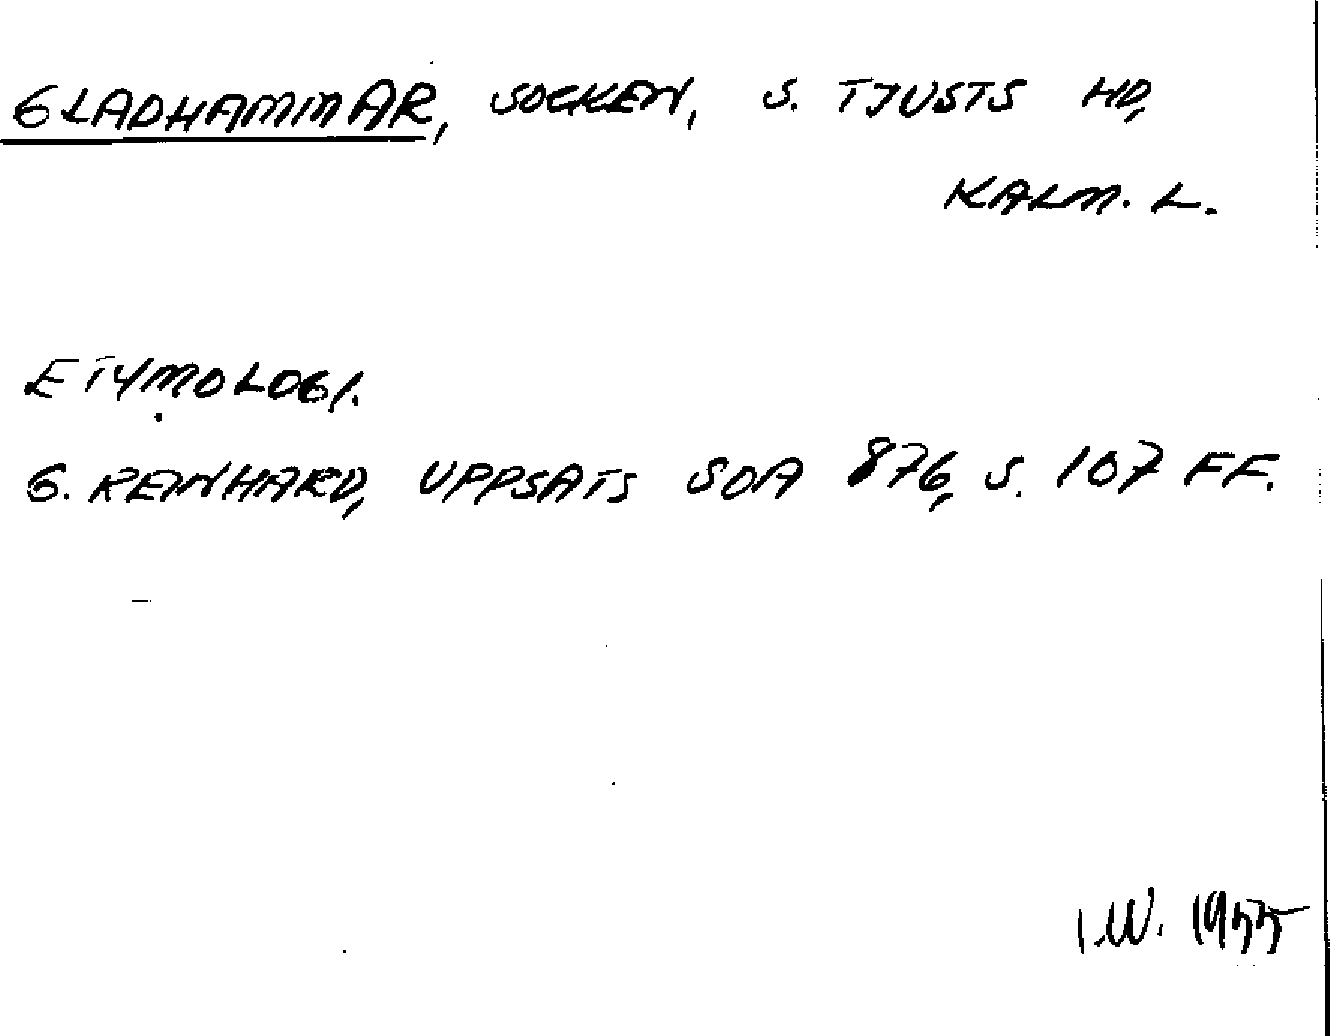 GLADHAMMAR, SOCKEN, S. TJUSTS HD,
KALM. L.
ETYMOLOGI.
G. REINHARD, UPPSATS SOA 876, S. 107 FF.
I.W. 1977